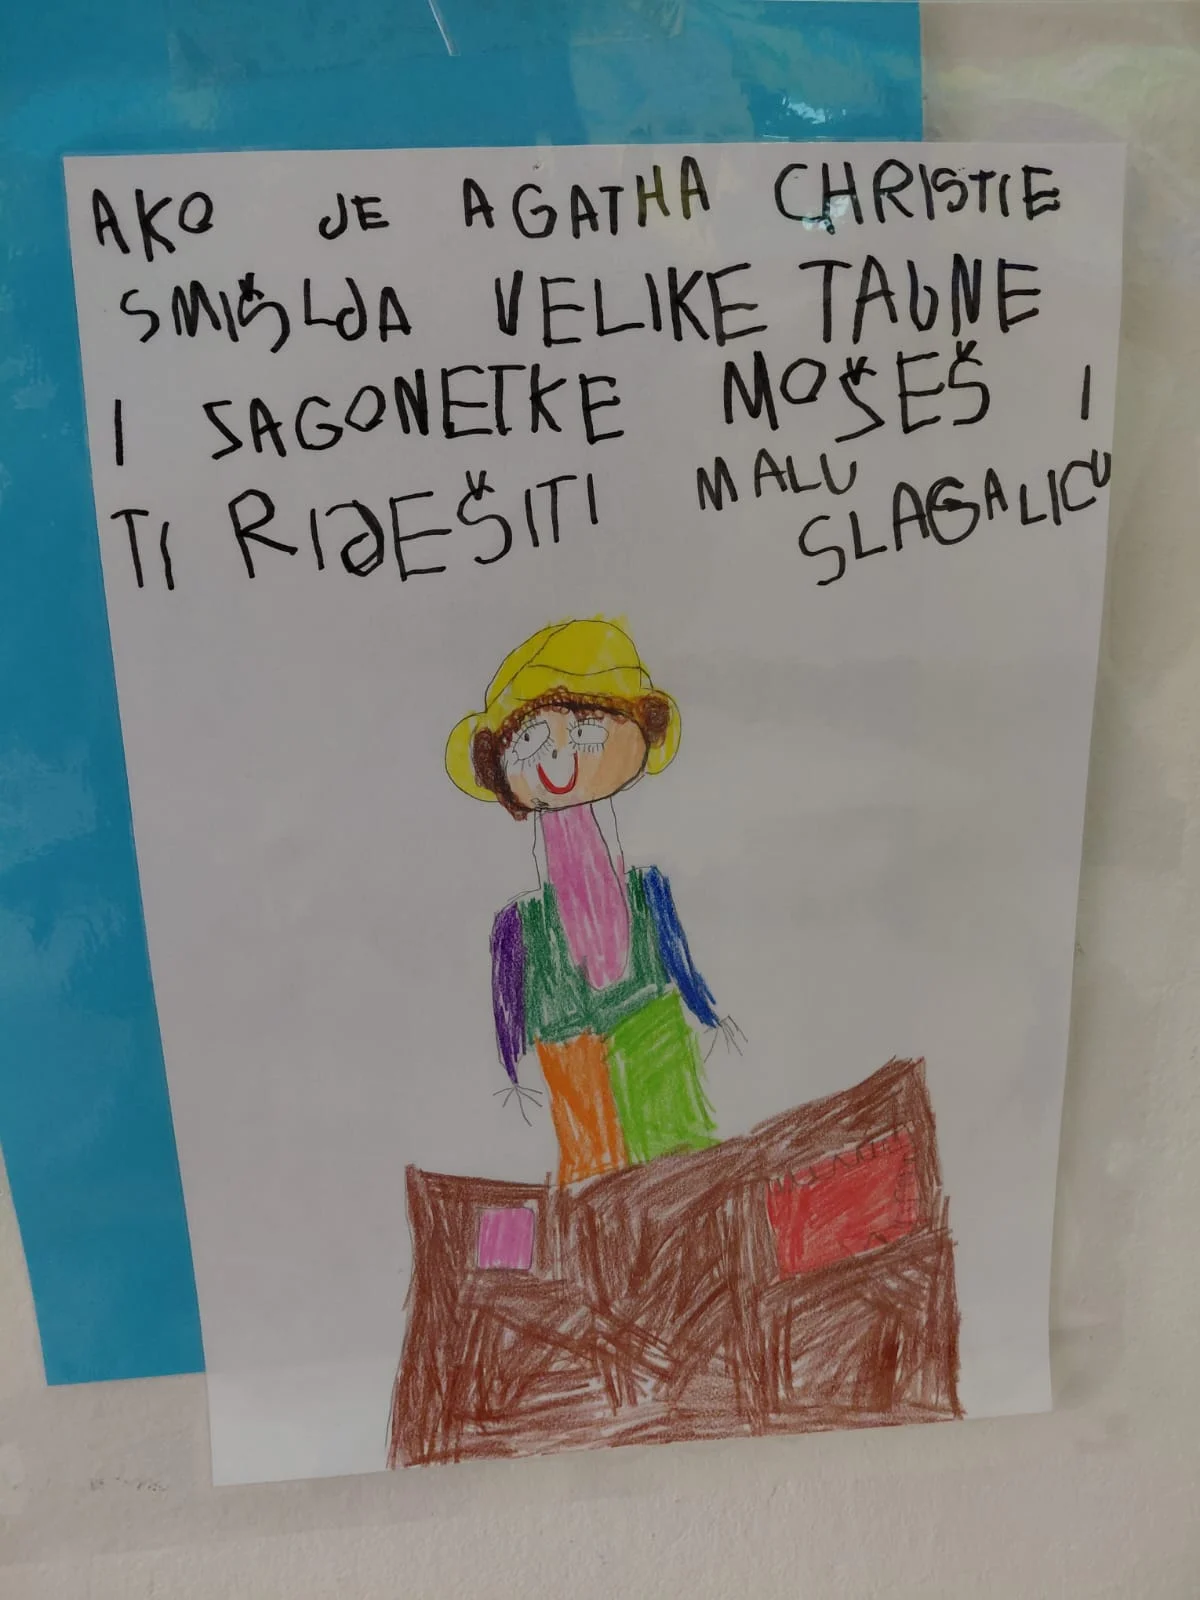 AKO JE AGATHA CHRISTIE
SMIŠLJA VELIKE TAJNE
I SAGONETKE MOŠEŠ I
TI RIJEŠITI MALU
SLAGALICU